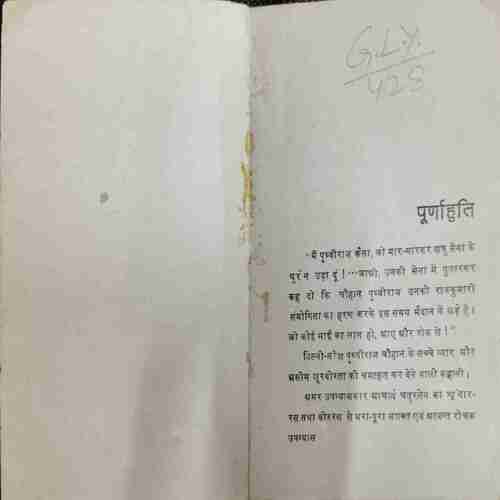 G.L.Y.
425
पूर्णाहुति
"मैं पृथ्वीराज कैसा, को मार-मारकर शत्रु सेना के
धुर्रे न उड़ा दूं !···जाओ, उनकी सेना में पुकारकर
कह दो कि चौहान पृथ्वीराज उनकी राजकुमारी
संयोगिता का हरण करके इस समय मैदान में खड़े हैं।
जो कोई माई का लाल हो, आए और रोक ले !"
दिल्ली-नरेश पृथ्वीराज चौहान के सच्चे प्यार और
असीम शूरवीरता की चमत्कृत कर देने वाली कहानी।
अमर उपन्यासकार आचार्य चतुरसेन का शृंगार-
रस तथा वीररस से भरा-पूरा सशक्त एवं अत्यन्त रोचक
उपन्यास